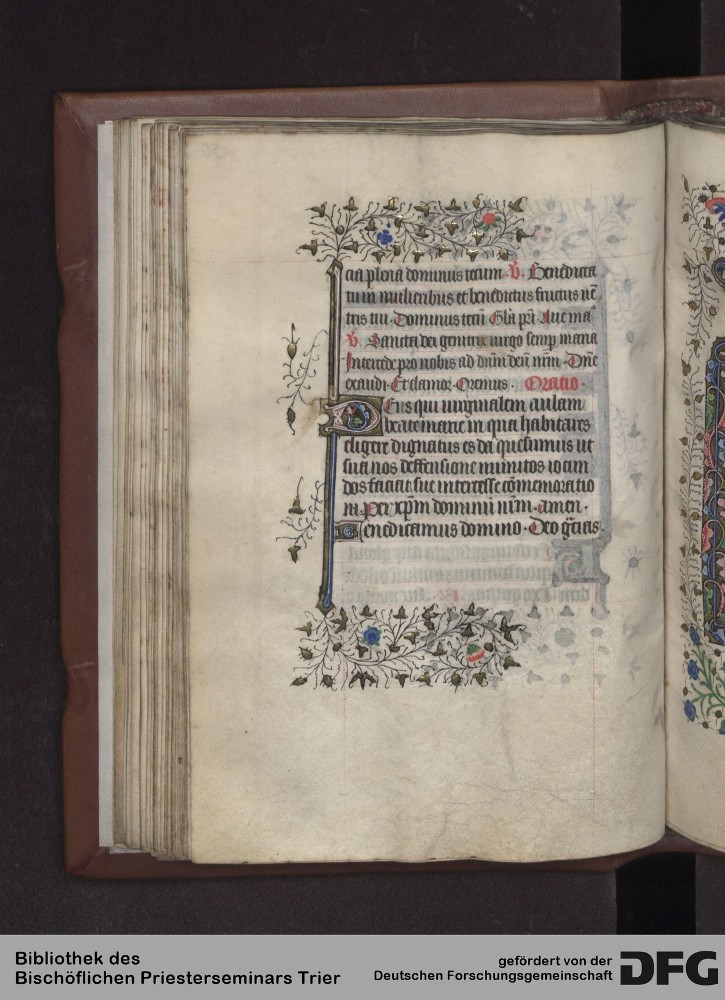 cia plena dominus tecum. V. Benedicta
tu in mulieribus et benedictus fructus uē
tris tui. Dominus tecū Glā pr̄i. Aue maᵃ
V. Sancta dei genitrix uirgo semp̄ maria
Intercede pro nobis ad dn̄m deū nr̄m. Dn̄e
exaudi. Et clamor. Oremus. Oratio.
Deus qui uirginalem aulam
beate marie in qua habitares
eligere dignatus es da quesumus ut
sua nos deffensione munitos iocun
dos faciat sue interesse cōmemoratio
ni. Per xp̄m dominū nr̄m. amen.
Benedicamus domino. Deo gr̄cias.
Bibliothek des
Bischöflichen Priesterseminars Trier
gefördert von der
Deutschen Forschungsgemeinschaft
DFG